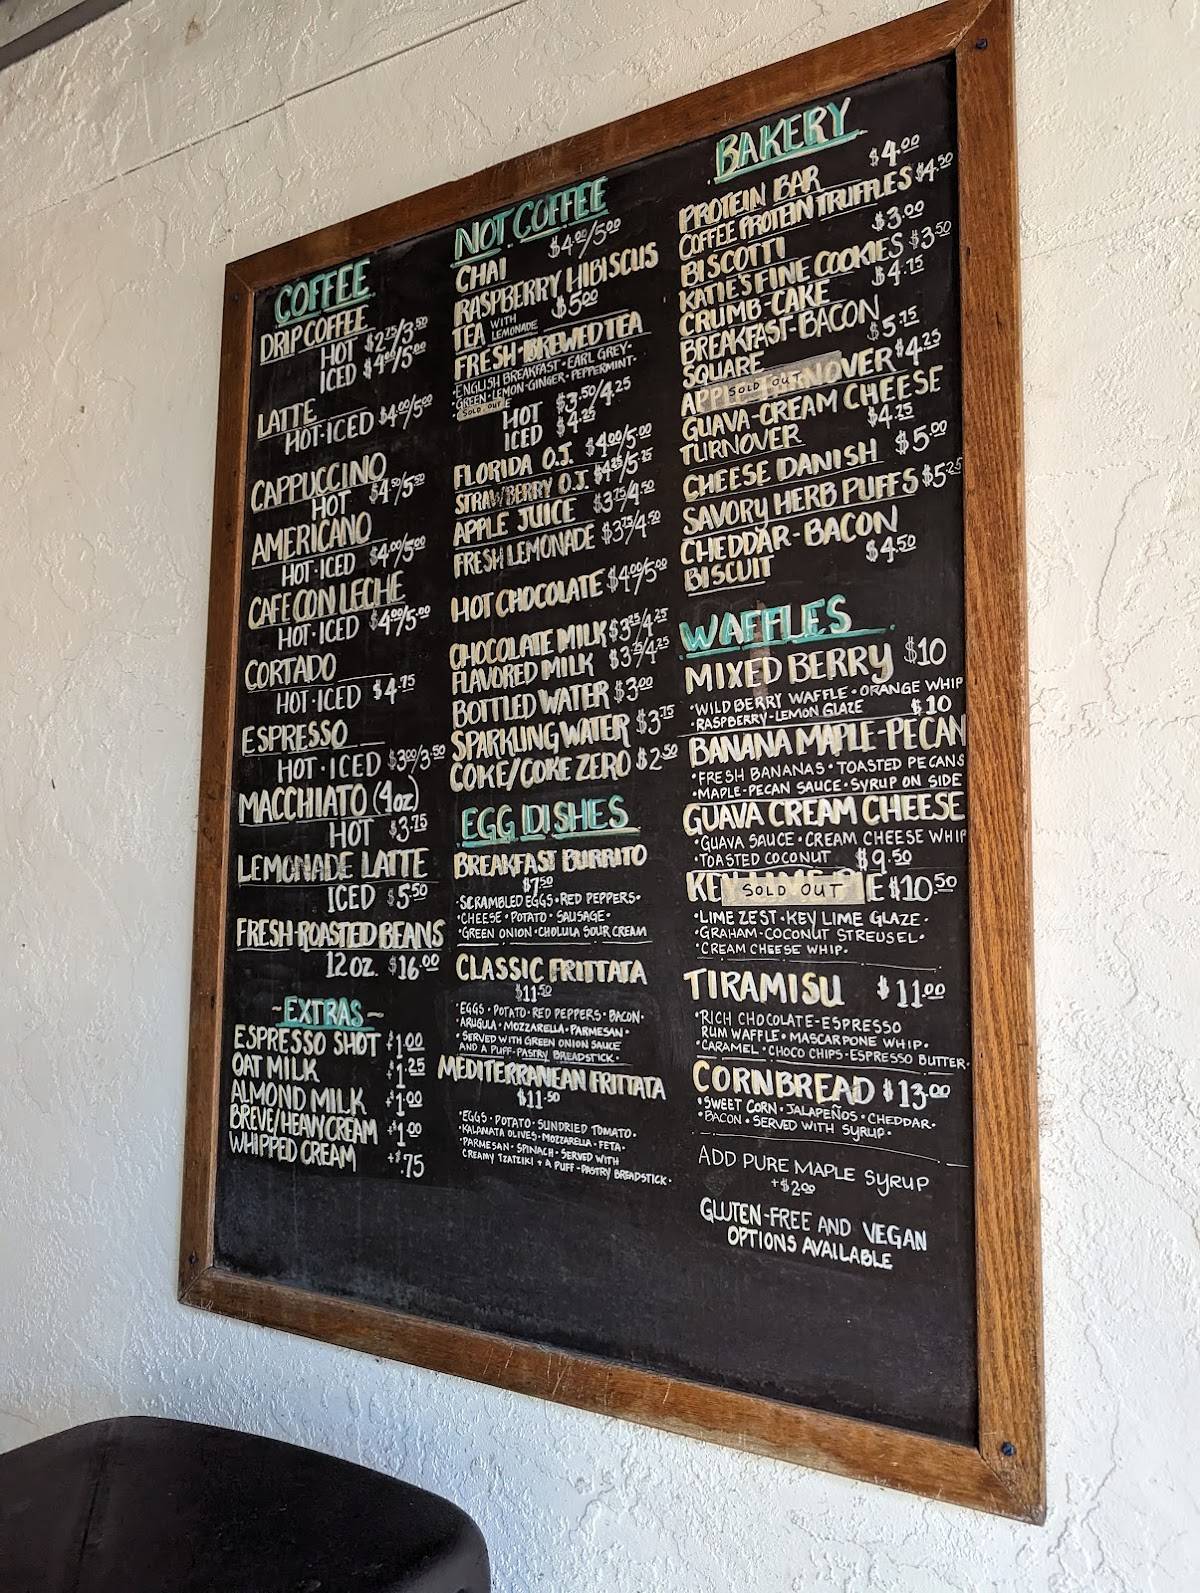 COFFEE
DRIP COFFEE
HOT $2.75/3.50
ICED $4.00/5.00
LATTE
HOT·ICED $4.00/5.00
CAPPUCCINO
HOT $4.50/5.50
AMERICANO
HOT·ICED $4.00/5.00
CAFE CON LECHE
HOT·ICED $4.00/5.00
CORTADO
HOT·ICED $4.75
ESPRESSO
HOT·ICED $3.00/3.50
MACCHIATO (4oz)
HOT $3.75
LEMONADE LATTE
ICED $5.50
FRESH-ROASTED BEANS
12 OZ. $16.00
~EXTRAS~
ESPRESSO SHOT +$1.00
OAT MILK +$1.25
ALMOND MILK +$1.00
BREVE/HEAVY CREAM +$1.00
WHIPPED CREAM +$.75
NOT COFFEE
CHAI $4.00/5.00
RASPBERRY HIBISCUS
TEA WITH LEMONADE $5.00
FRESH-BREWED TEA
·ENGLISH BREAKFAST·EARL GREY·
·GREEN·LEMON-GINGER·PEPPERMINT·
SOLD OUT
HOT $3.50/4.25
ICED $4.25
FLORIDA O.J. $4.00/5.00
STRAWBERRY O.J. $4.25/5.25
APPLE JUICE $3.75/4.50
FRESH LEMONADE $3.75/4.50
HOT CHOCOLATE $4.00/5.00
CHOCOLATE MILK $3.25/4.25
FLAVORED MILK $3.25/4.25
BOTTLED WATER $3.00
SPARKLING WATER $3.75
COKE/COKE ZERO $2.50
EGG DISHES
BREAKFAST BURRITO
$7.50
·SCRAMBLED EGGS·RED PEPPERS·
·CHEESE·POTATO·SAUSAGE·
·GREEN ONION·CHOLULA SOUR CREAM
CLASSIC FRITTATA
$11.50
·EGGS·POTATO·RED PEPPERS·BACON·
·ARUGULA·MOZZARELLA·PARMESAN·
·SERVED WITH GREEN ONION SAUCE
AND A PUFF-PASTRY BREADSTICK·
MEDITERRANEAN FRITTATA
$11.50
·EGGS·POTATO·SUNDRIED TOMATO·
·KALAMATA OLIVES·MOZZARELLA·FETA·
·PARMESAN·SPINACH·SERVED WITH
CREAMY TZATZIKI + A PUFF-PASTRY BREADSTICK·
BAKERY
PROTEIN BAR $4.00
COFFEE PROTEIN TRUFFLES $4.50
BISCOTTI $3.00
KATIE'S FINE COOKIES $3.50
CRUMB-CAKE $4.75
BREAKFAST-BACON
SQUARE $5.75
SOLD OUT TURNOVER $4.25
GUAVA-CREAM CHEESE
TURNOVER $4.75
CHEESE DANISH $5.00
SAVORY HERB PUFFS $5.25
CHEDDAR-BACON
BISCUIT $4.50
WAFFLES
MIXED BERRY $10
·WILD BERRY WAFFLE·ORANGE WHIP
·RASPBERRY-LEMON GLAZE
$10
BANANA MAPLE-PECAN
·FRESH BANANAS·TOASTED PECANS
·MAPLE-PECAN SAUCE·SYRUP ON SIDE
GUAVA CREAM CHEESE
·GUAVA SAUCE·CREAM CHEESE WHIP
·TOASTED COCONUT $9.50
KEY SOLD OUT E $10.50
·LIME ZEST·KEY LIME GLAZE·
·GRAHAM-COCONUT STREUSEL·
·CREAM CHEESE WHIP·
TIRAMISU $11.00
·RICH CHOCOLATE-ESPRESSO
RUM WAFFLE·MASCARPONE WHIP·
·CARAMEL·CHOCO CHIPS·ESPRESSO BUTTER·
CORNBREAD $13.00
·SWEET CORN·JALAPEÑOS·CHEDDAR·
·BACON·SERVED WITH SYRUP·
ADD PURE MAPLE SYRUP
+$2.00
GLUTEN-FREE AND VEGAN
OPTIONS AVAILABLE